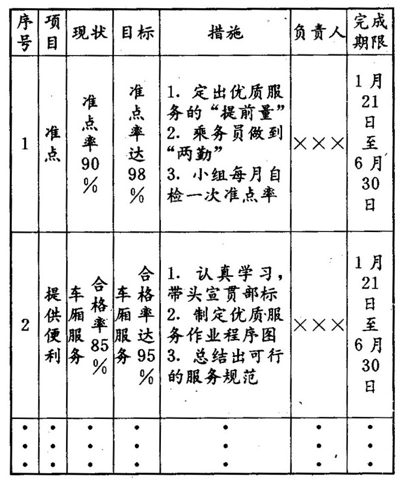 序号 项目 现状 目标 措施 负责人 完成期限
1 准点 准点率90% 准点率达98%
1. 定出优质服
务的“提前量”
2. 乘务员做到
“两勤”
3. 小组每月自
检一次准点率
×××
1月21日至6月30日
2 提供便利 车厢服务合格率85% 车厢服务合格率达95%
1. 认真学习，
带头宣贯部标
2. 制定优质服
务作业程序图
3. 总结出可行
的服务规范
×××
1月21日至6月30日